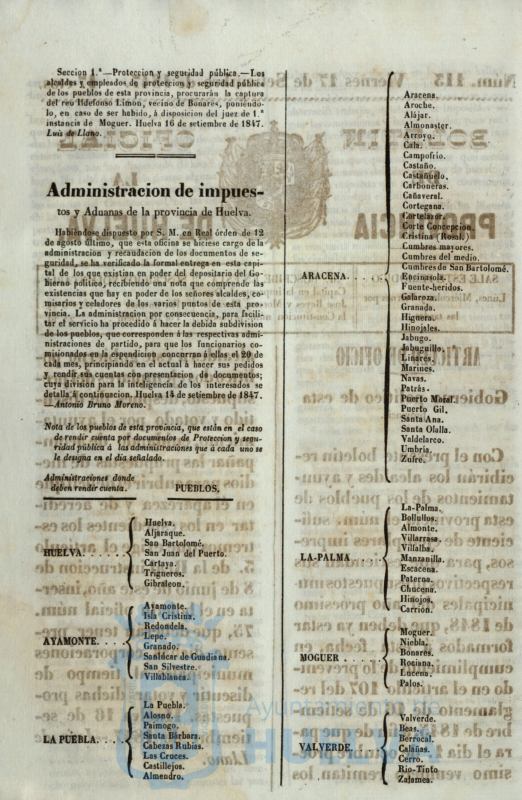 Seccion 1.ª—Proteccion y seguridad pública.—Los
alcaldes y empleados de proteccion y seguridad pública
de los pueblos de esta provincia, procurarán la captura
del reo Ildefonso Limon, vecino de Bonares, poniéndo-
lo, en caso de ser habido, á disposicion del juez de 1.ª
instancia de Moguer. Huelva 16 de setiembre de 1847.
Luis de Llano.
Administracion de impues-
tos y Aduanas de la provincia de Huelva.
Habiéndose dispuesto por S. M. en Real órden de 12
de agosto último, que esta oficina se hiciese cargo de la
administracion y recaudacion de los documentos de se-
guridad, se ha verificado la formal entrega en esta capi-
tal de los que existian en poder del depositario del Go-
bierno político, recibiendo una nota que comprende las
existencias que hay en poder de los señores alcaldes, co-
misarios y celadores de los varios puntos de esta pro-
vincia. La administracion por consecuencia, para facili-
tar el servicio ha procedido á hacer la debida subdivision
de los pueblos, que corresponden á las respectivas admi-
nistraciones de partido, para que los funcionarios co-
misionados en la espendicion concurran á ellas el 20 de
cada mes, principiando en el actual á hacer sus pedidos
y rendir sus cuentas con presentacion de documentos;
cuya division para la inteligencia de los interesados se
detalla á continuacion. Huelva 14 de setiembre de 1847.
—Antonio Bruno Moreno.
Nota de los pueblos de esta provincia, que están en el caso
de rendir cuenta por documentos de Proteccion y segu-
ridad pública á las administraciones que á cada uno se
le designa en el dia señalado.
Administraciones donde
deben rendir cuenta. PUEBLOS.
HUELVA. . . . .
Huelva.
Aljaraque.
San Bartolomé.
San Juan del Puerto.
Cartaya.
Trigueros.
Gibraleon.
AYAMONTE. . . .
Ayamonte.
Isla Cristina.
Redondela.
Lepe.
Granado.
Sanlúcar de Guadiana.
San Silvestre.
Villablanca.
LA PUEBLA. . . .
La Puebla.
Alosno.
Paimogo.
Santa Bárbara.
Cabezas Rubias.
Las Cruces.
Castillejos.
Almendro.
ARACENA. . . .
Aracena.
Aroche.
Alájar.
Almonaster.
Arroyo.
Cala.
Campofrio.
Castaño.
Castañuelo.
Carboneras.
Cañaveral.
Cortegana.
Cortelazor.
Corte Concepcion.
Cristina (Rosal.)
Cumbres mayores.
Cumbres del medio.
Cumbres de San Bartolomé.
Encinasola.
Fuente-heridos.
Galaroza.
Granada.
Higuera.
Hinojales.
Jabugo.
Jabuguillo.
Linares.
Marines.
Navas.
Patrás.
Puerto Moral.
Puerto Gil.
Santa Ana.
Santa Olalla.
Valdelarco.
Umbria.
Zufre.
LA-PALMA. . . .
La-Palma.
Bollullos.
Almonte.
Villarrasa.
Villalba.
Manzanilla.
Escacena.
Paterna.
Chucena.
Hinojos.
Carrion.
MOGUER . . . . .
Moguer.
Niebla.
Bonares.
Rociana.
Lucena.
Palos.
VALVERDE. . . .
Valverde.
Beas.
Berrocal.
Calañas.
Cerro.
Rio-Tinto
Zalamea.
Ayuntamiento de
HUELVA